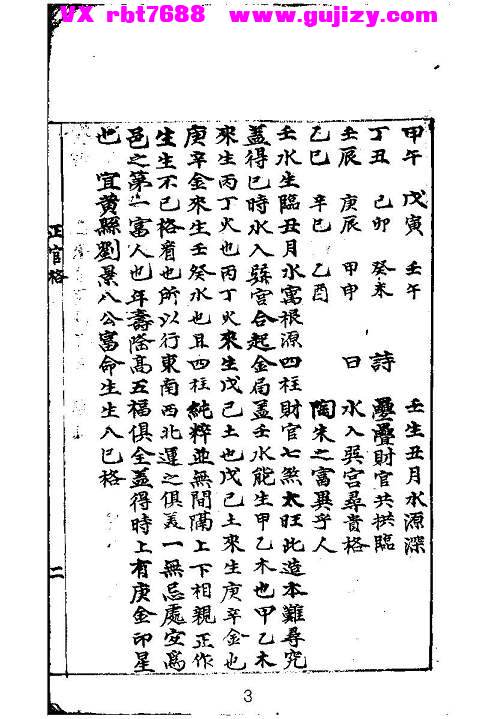 VX rbt7688 www.gujizy.com
甲午 戊寅 壬午 壬生丑月水源深
丁丑 己卯 癸未 詩 疊疊財官共拱臨
壬辰 庚辰 甲申 曰 水入巽宮尋貴格
乙巳 辛巳 乙酉 陶朱之富異乎人
壬水生臨丑月水寓根源四柱財官七煞太旺此造本難尋究
盖得巳時水入巽宮合起金局盖壬水能生甲乙木也甲乙木
來生丙丁火也丙丁火來生戊己土也戊己土來生庚辛金也
庚辛金來生壬癸水也且四柱純粹並無間隔上下相親正作
生生不已格看也所以行東南西北運之俱美一無忌處宜為
邑之第一富人也年壽隆高五福俱全盖得時上有庚金印星
也 宜黄縣劉景八公富命生生入巳格
正官格
二
3